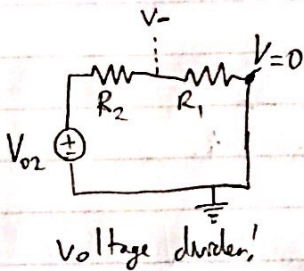 V-
V=0
R2
R1
V02
±
Voltage divider!